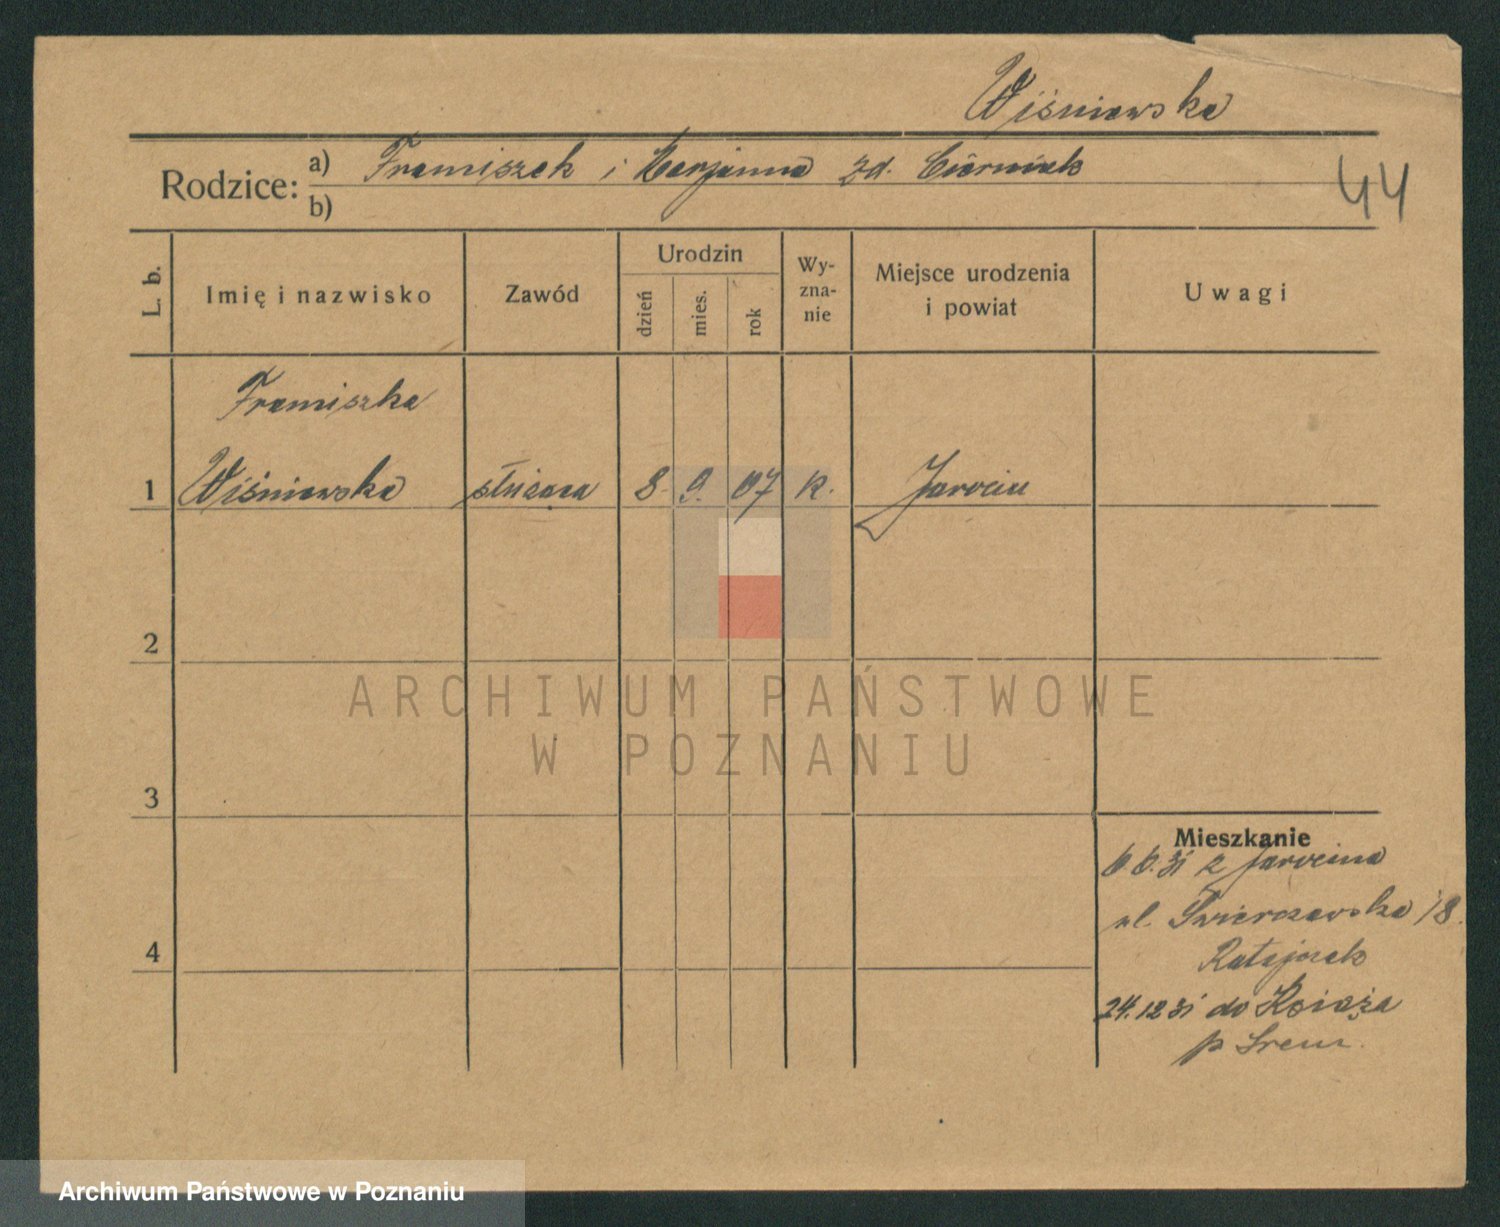 Wiśniewska
Rodzice: a) Franciszek i Marjanna zd. Cierniak
44
b)
L. b. Imię i nazwisko Zawód Urodzin dzień mies. rok Wy-zna-nie Miejsce urodzenia i powiat Uwagi
Franciszka
1 Wiśniewska służąca 8. 9. 07 k. Jarocin
2
ARCHIWUM PAŃSTWOWE
W POZNANIU
3
Mieszkanie
6.6.31 z Jarocina
ul. 18.
Ratajczak
4
24.12 31 do Książa
p Śrem.
Archiwum Państwowe w Poznaniu